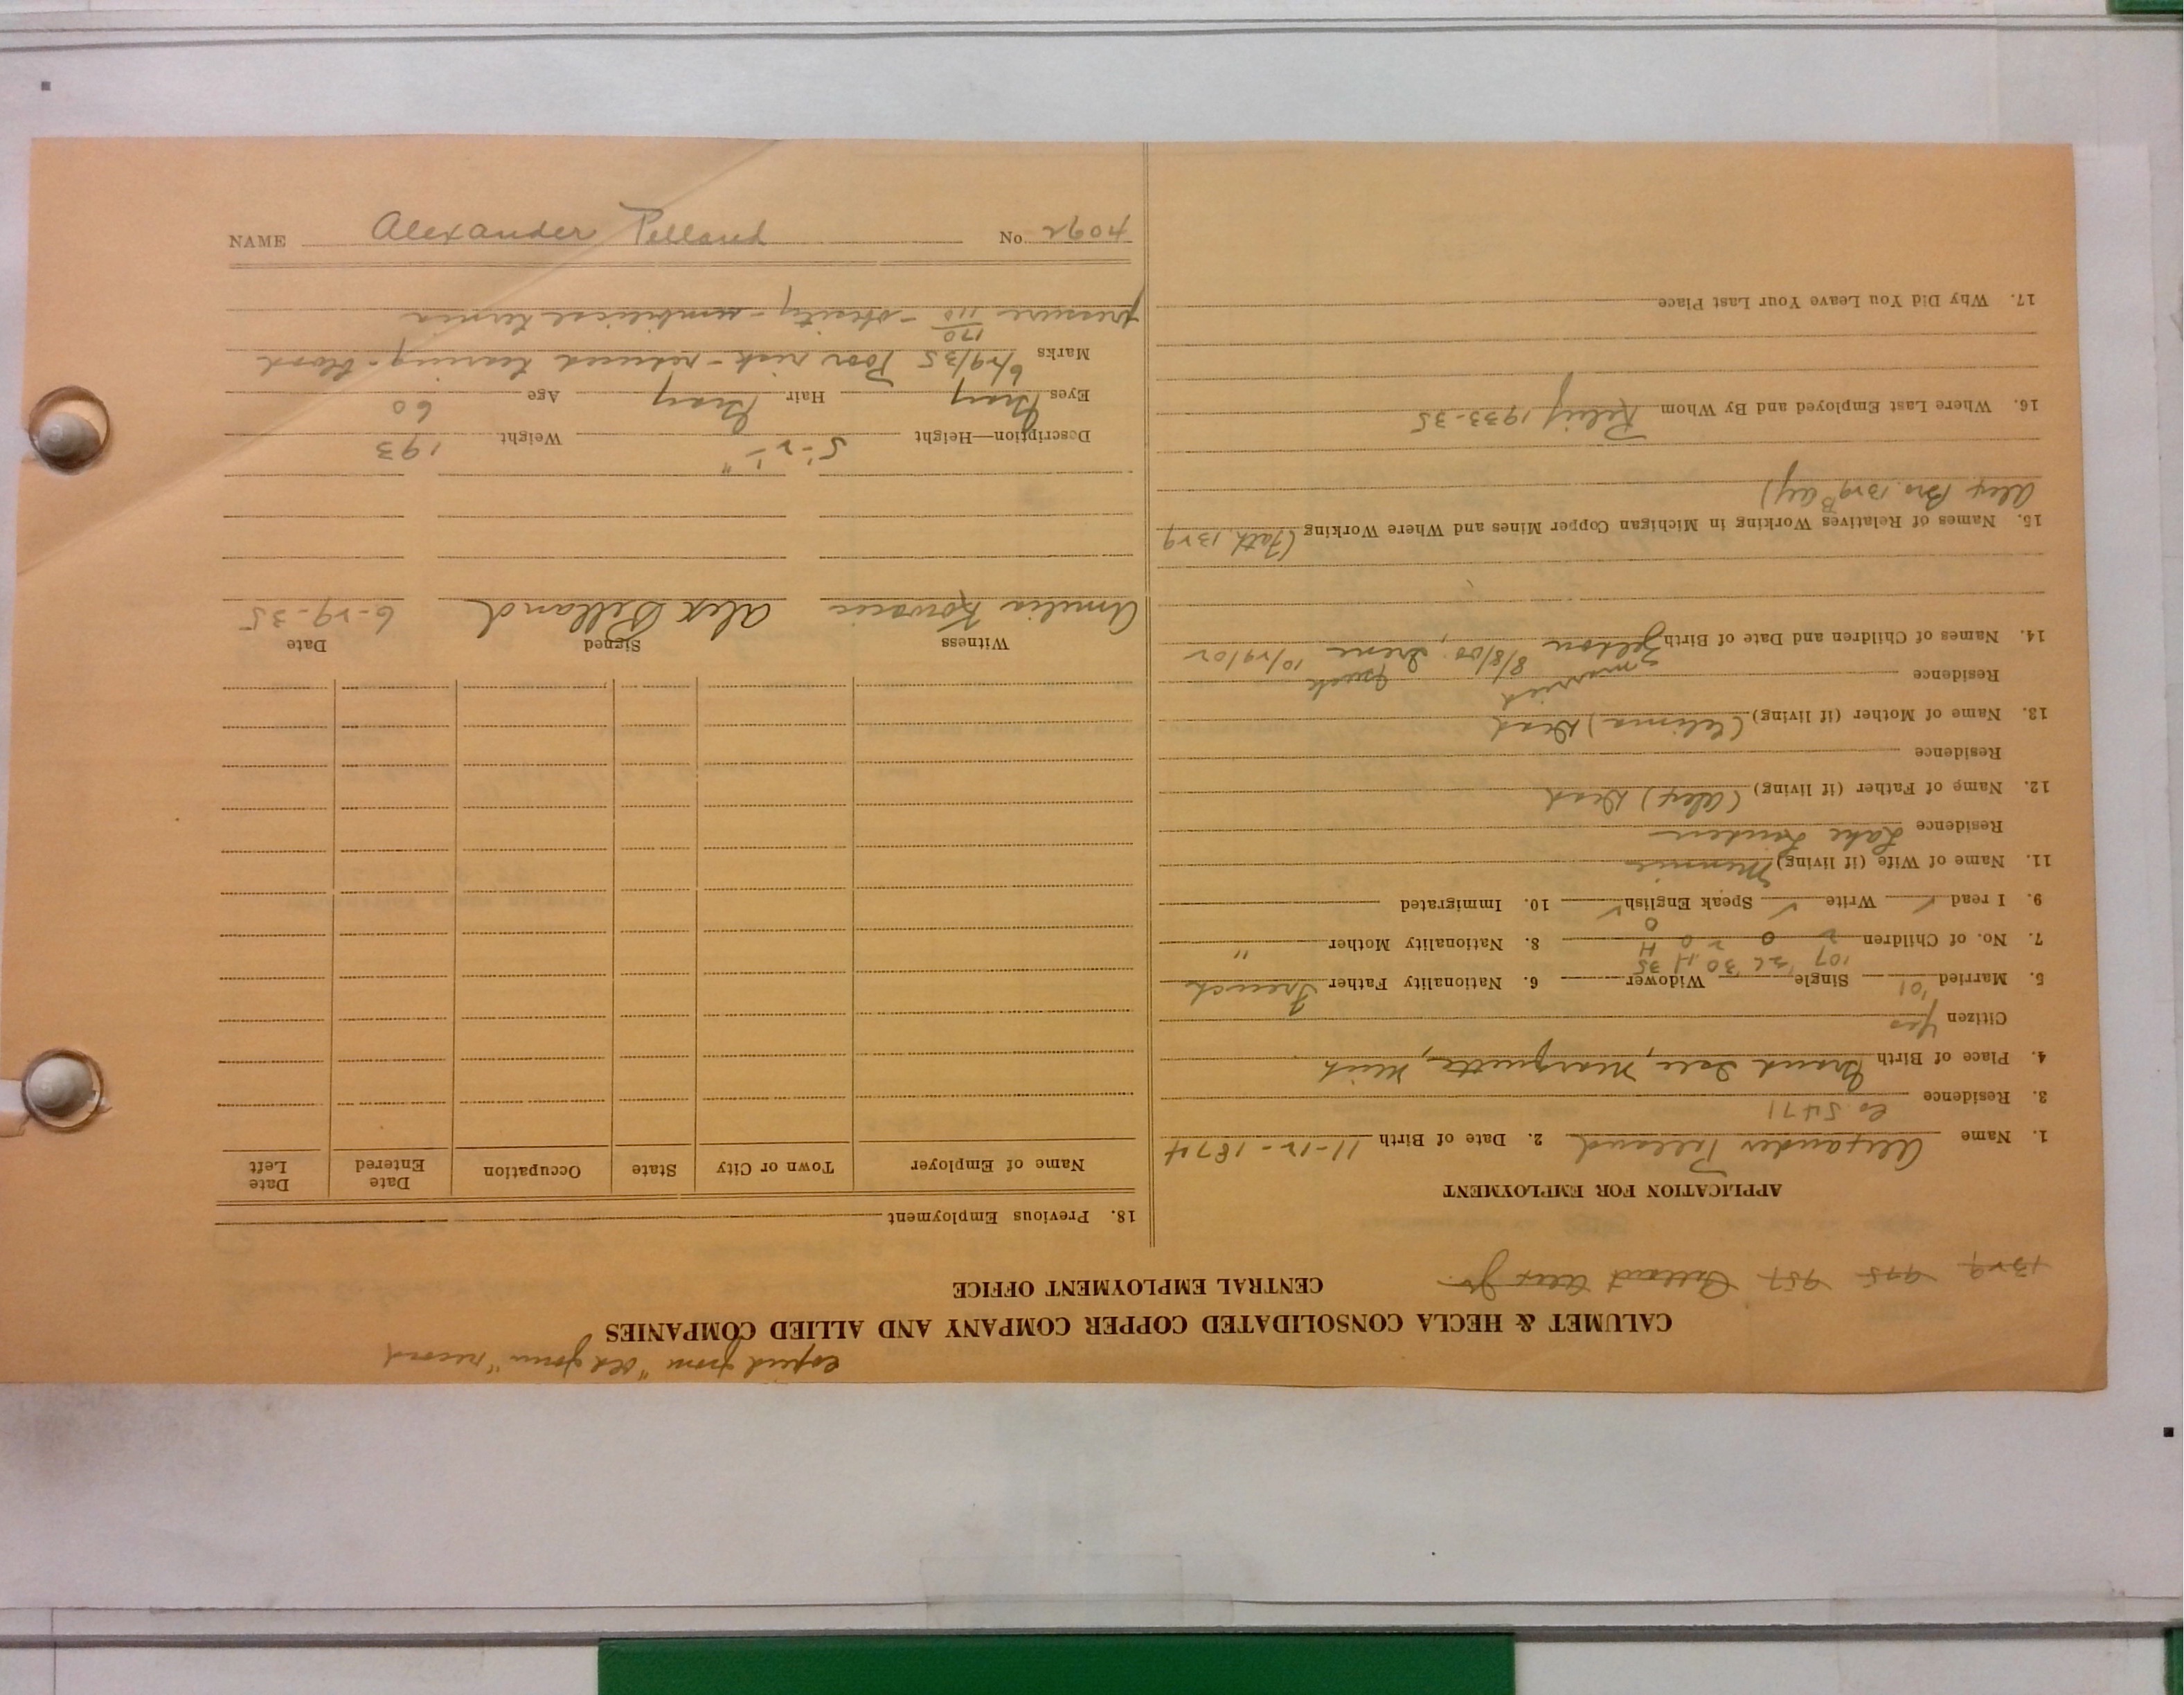 copied from "old form" record
CALUMET & HECLA CONSOLIDATED COPPER COMPANY AND ALLIED COMPANIES
CENTRAL EMPLOYMENT OFFICE
1329 995 957 Pelland Alex Jr.
APPLICATION FOR EMPLOYMENT
1. Name Alexander Pelland 2. Date of Birth 11-12-1874
Co 5471
3. Residence
4. Place of Birth Grand Isle, Marquette, Mich
Citizen Yes
5. Married '01 Single Widower 6. Nationality Father French
'07 '26 '30 H 35
7. No. of Children 2 0 2 0 H 0 8. Nationality Mother "
9. I read ✓ Write ✓ Speak English ✓ 10. Immigrated
11. Name of Wife (if living) Minnie
Residence Lake Linden
12. Name of Father (if living) (Alex) Dead
Residence
13. Name of Mother (if living) (Celima) Dead
Residence
married
14. Names of Children and Date of Birth Zelton 8/8/08, Irene 10/29/02
15. Names of Relatives Working in Michigan Copper Mines and Where Working (Fath. 1329
Alex Bro. 1329 B Aly)
16. Where Last Employed and By Whom Relief 1933-35
17. Why Did You Leave Your Last Place
18. Previous Employment
Name of Employer Town or City State Occupation Date Entered Date Left
Witness Signed Date
Amelia Kovacic Alex Pelland 6-29-35
Description—Height 5'-2½" Weight 193
Eyes Gray Hair Gray Age 60
Marks 6/29/35 Poor risk - reduced hearing - blood
pressure 170/110 - obesity - umbilical hernia
NAME Alexander Pelland No. 4092